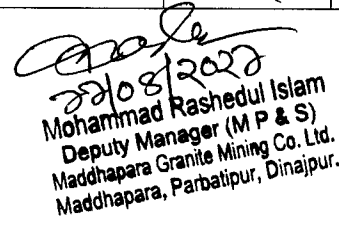 Mohammad Rashedul Islam
Deputy Manager (M P & S)
Maddhapara Granite Mining Co. Ltd.
Maddhapara, Parbatipur, Dinajpur.